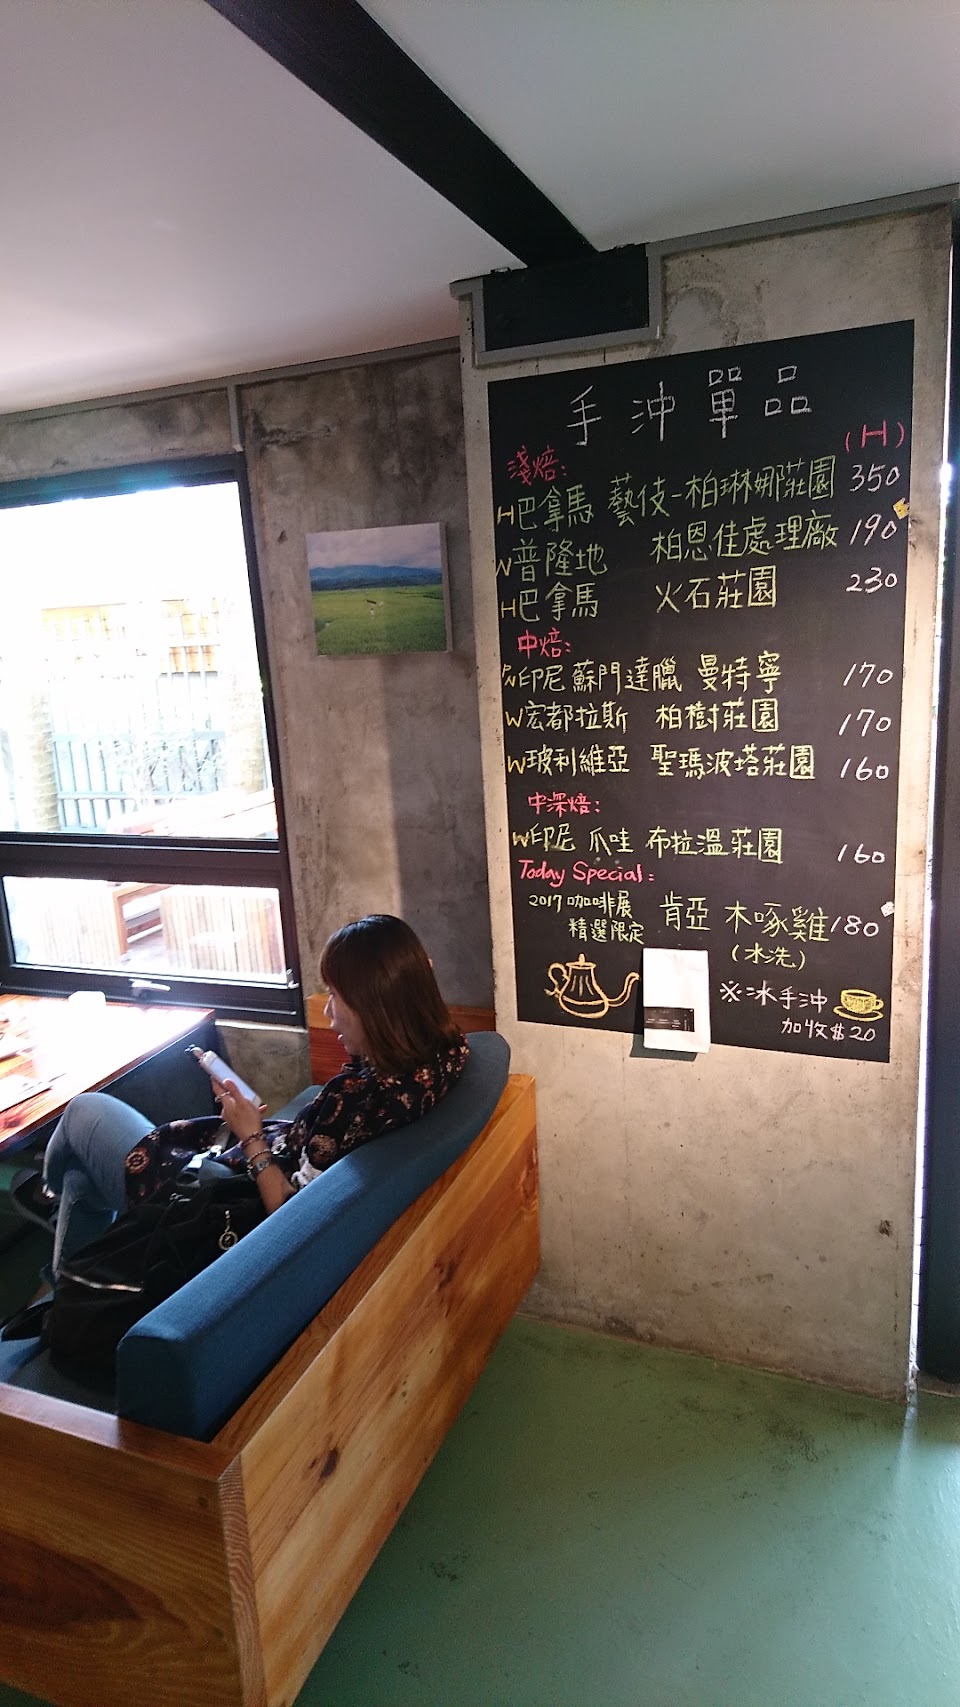 手沖單品
(H)
淺焙:
H巴拿馬 藝伎-柏琳娜莊園 350
W普隆地 柏恩佳處理廠 190
H巴拿馬 火石莊園 230
中焙:
印尼 蘇門達臘 曼特寧 170
W宏都拉斯 柏樹莊園 170
W玻利維亞 聖瑪波塔莊園 160
中深焙:
W印尼 爪哇 布拉溫莊園 160
Today Special:
2017咖啡展 肯亞 木啄雞 180
精選限定
(水洗)
※冰手沖
加收$20